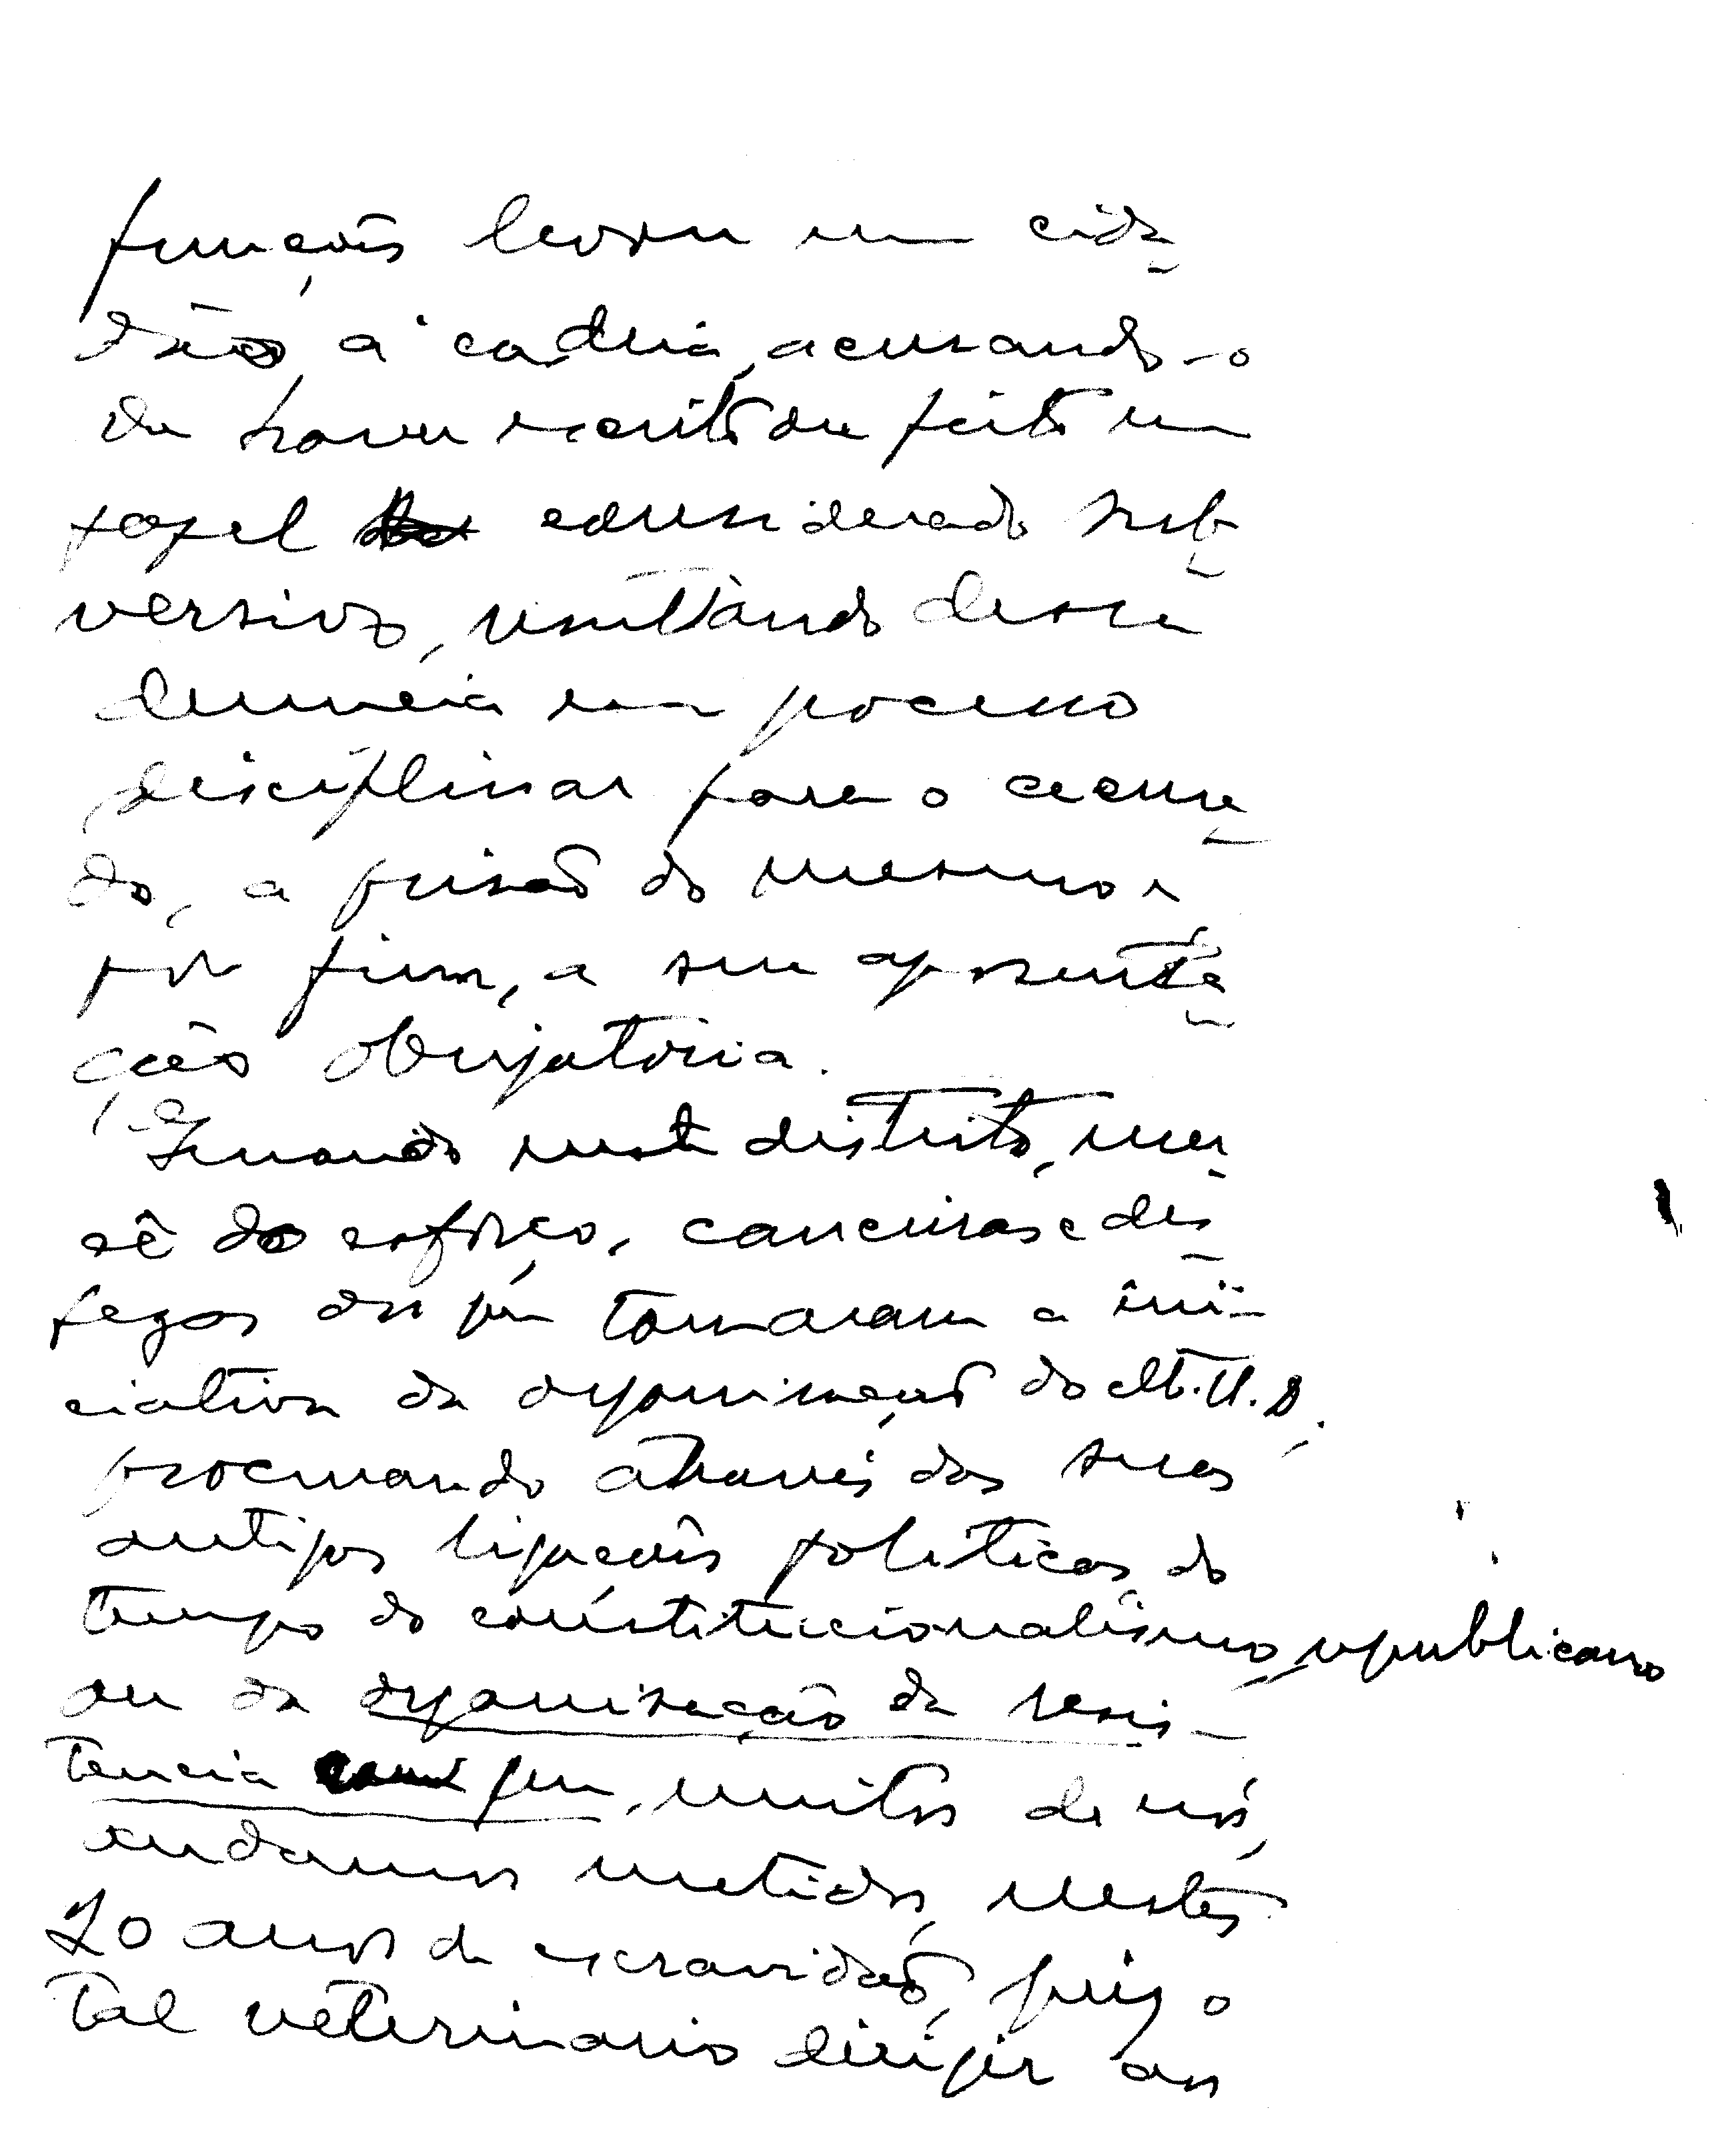 funções levou um cida-
dão à cadeia, acusando-o
de haver escrito ou feito um
papel considerado sub-
versivo, resultando dessa
denuncia um processo
disciplinar para o acusa-
do, a prisão do mesmo e
por fim, a sua aposenta-
ção obrigatoria.
Quando neste distrito, mer-
cê do esforço, canceiras e des-
pezas dos que tomaram a ini-
ciativa da organisação do M.U.D.,
procurando através das suas
antigas ligações politicas do
tempo do constitucionalismo republicano
ou da organisação da resis-
tencia em que, muitos de nós,
andamos metidos, nestes
20 anos de escravidão, quiz o
tal veterinario dirigir aos